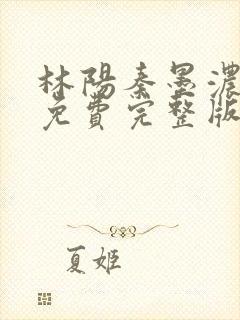 林陽秦墨濃
免費完整版
夏姬